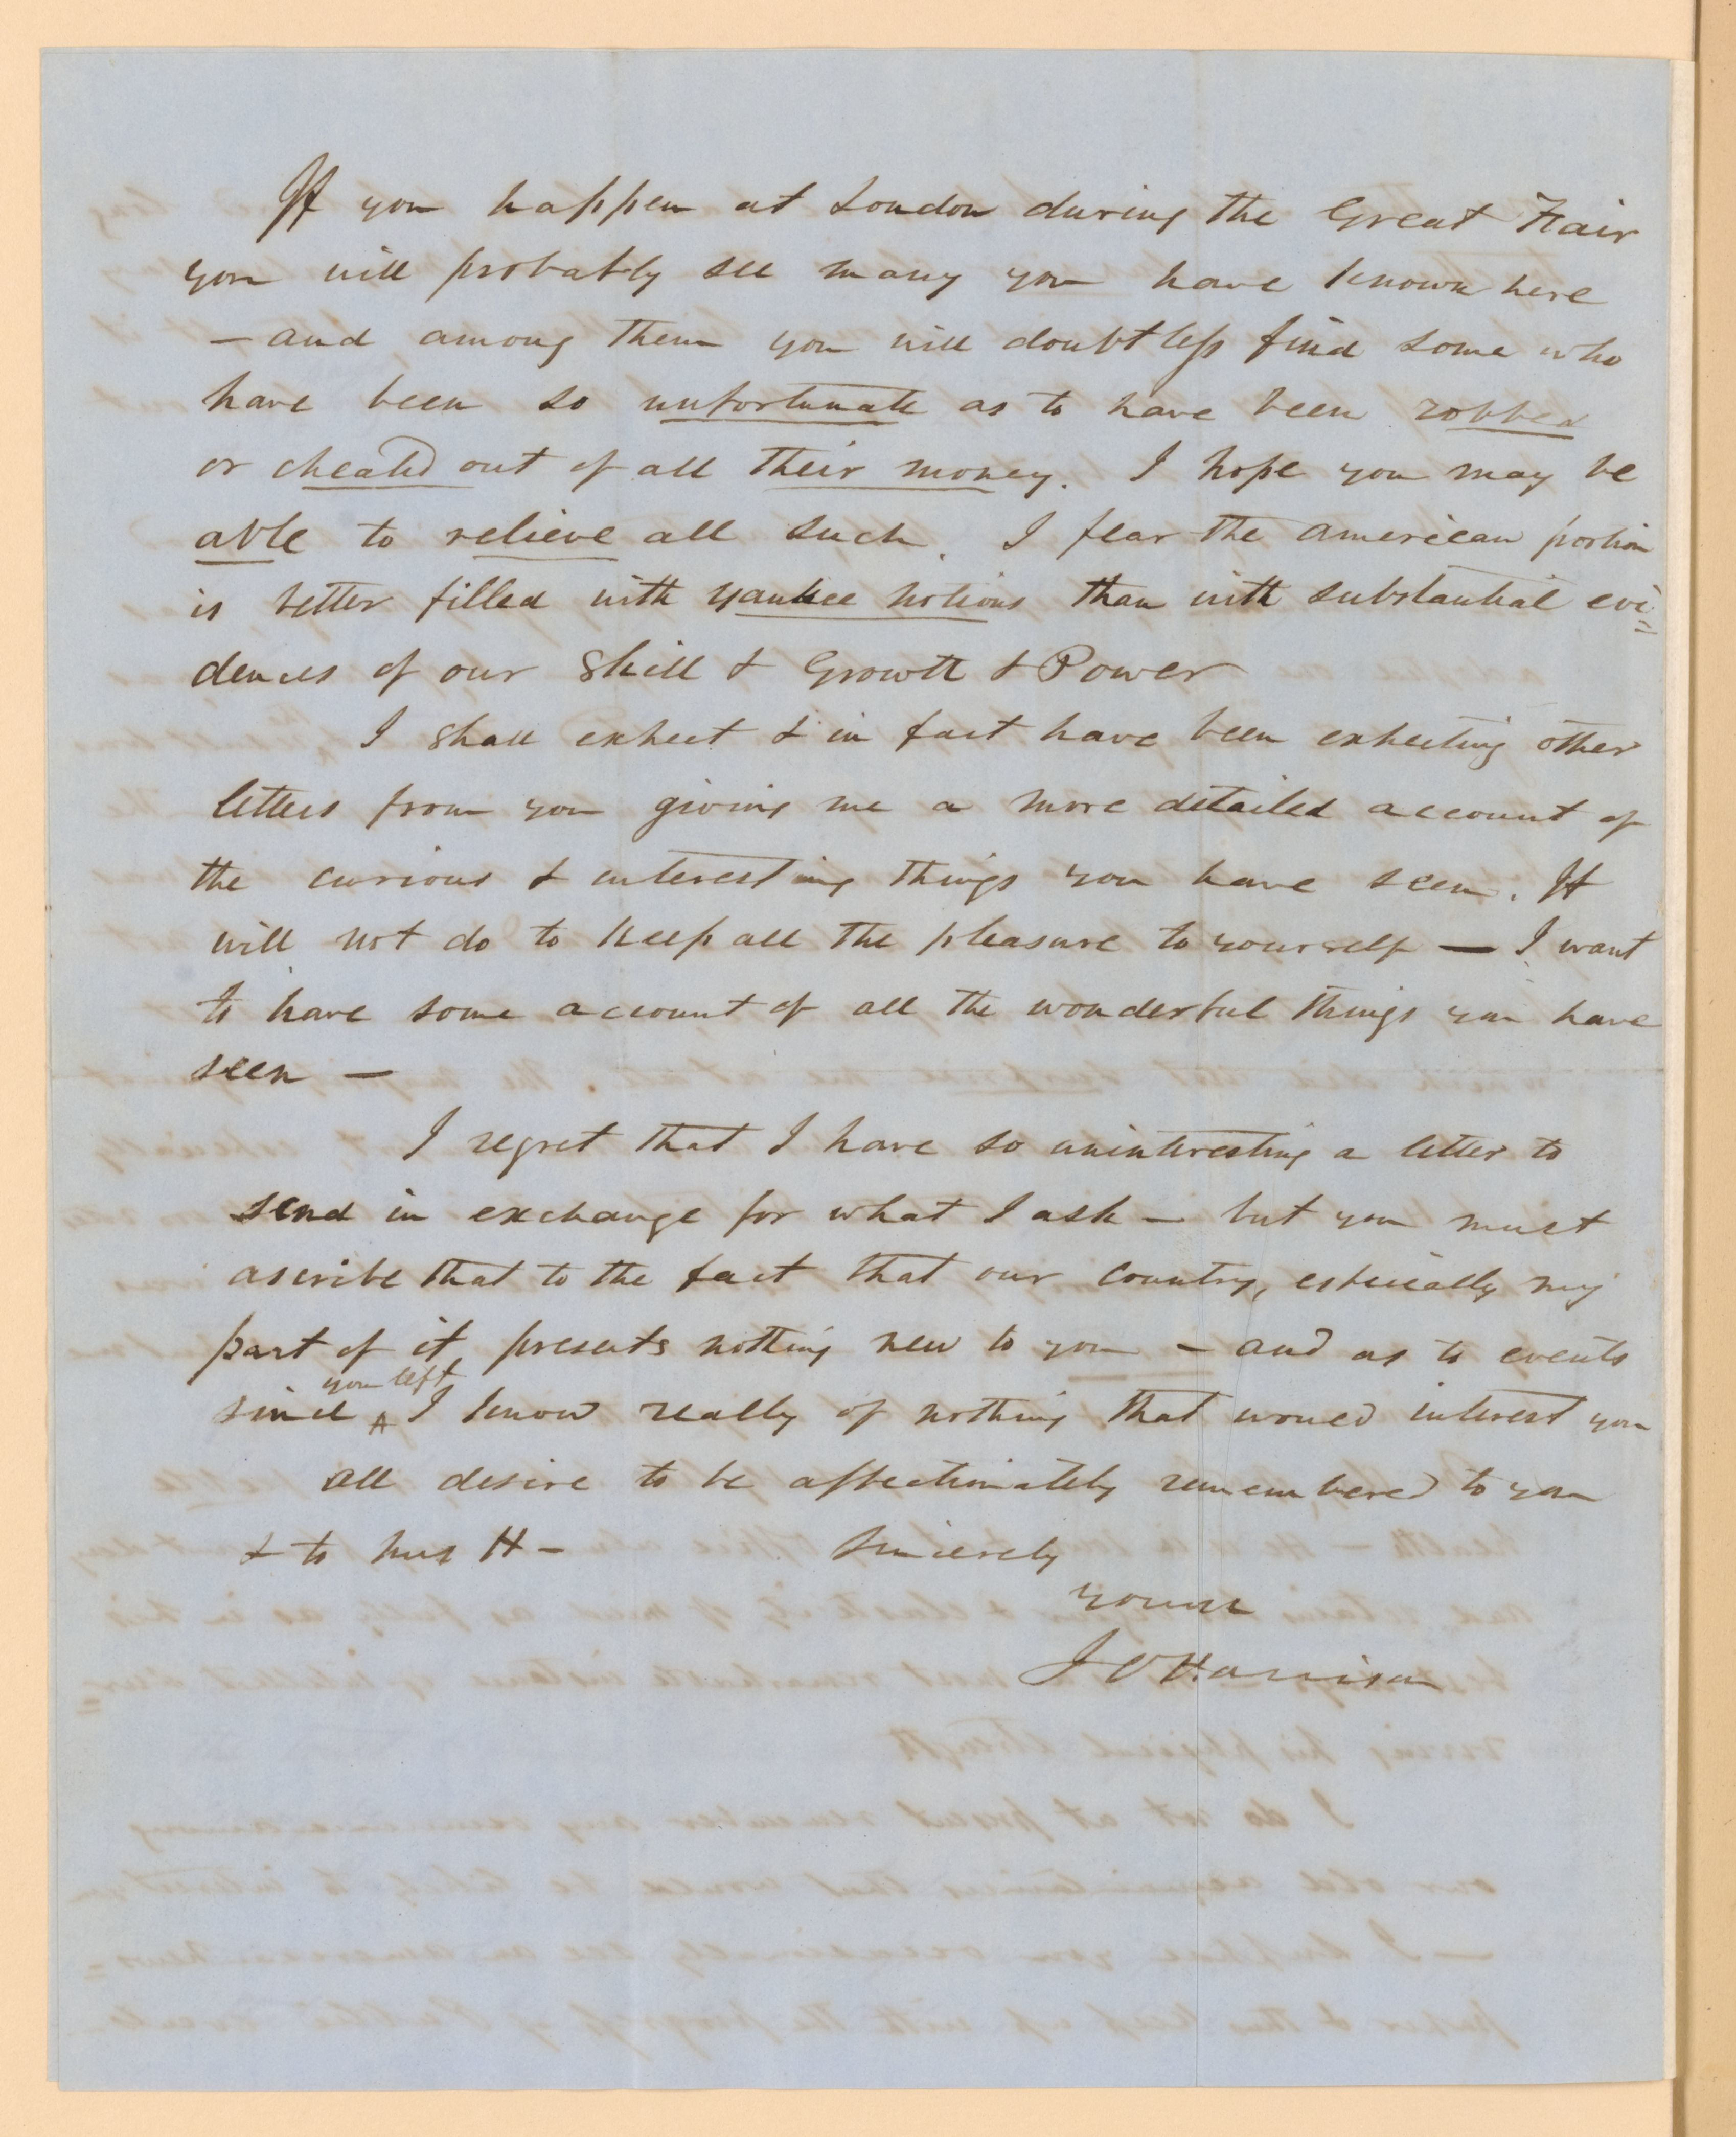 If you happen at London during the Great Fair
you will probably see many you have known here
— and among them you will doubtless find some who
have been so unfortunate as to have been robbed
or cheated out of all their money. I hope you may be
able to relieve all such. I fear the American portion
is better filled with yankee notions than with substantial evi=
dences of our Skill & Growth & Power
I shall expect & in fact have been expecting other
letters from you giving me a more detailed account of
the curious & interesting things you have seen. It
will not do to keep all the pleasure to yourself — I want
to have some account of all the wonderful things you have
seen —
I regret that I have so uninteresting a letter to
send in exchange for what I ask — but you must
ascribe that to the fact that our country, especially my
part of it presents nothing new to you — and as to events
you left
since ^ I know really of nothing that would interest you
All desire to be affectionately remembered to you
& to Mrs H —     Sincerely
yours
J O Harrison